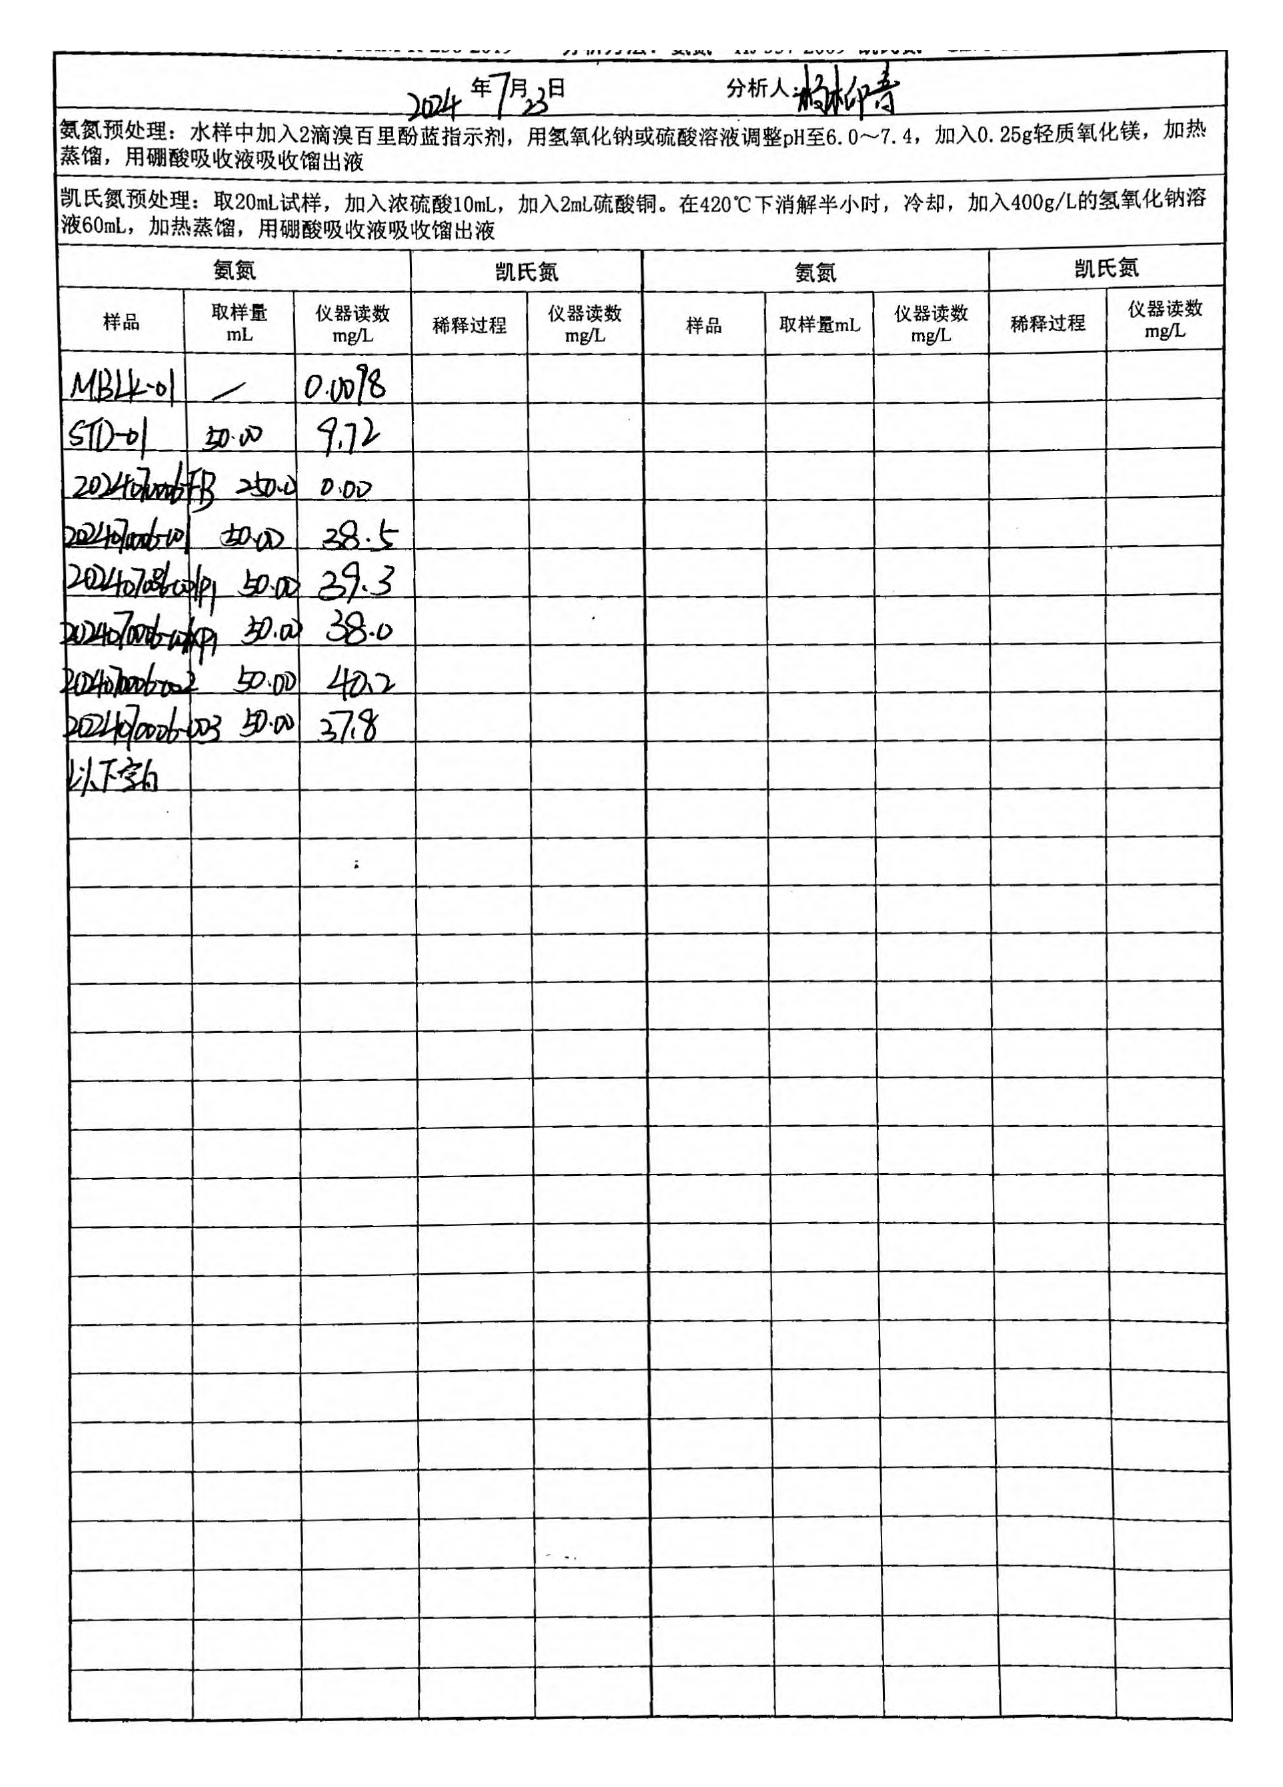 2024年7月23日 分析人:
氨氮预处理：水样中加入2滴溴百里酚蓝指示剂，用氢氧化钠或硫酸溶液调整pH至6.0～7.4，加入0.25g轻质氧化镁，加热
蒸馏，用硼酸吸收液吸收馏出液
凯氏氮预处理：取20mL试样，加入浓硫酸10mL，加入2mL硫酸铜。在420℃下消解半小时，冷却，加入400g/L的氢氧化钠溶
液60mL，加热蒸馏，用硼酸吸收液吸收馏出液
氨氮 凯氏氮 氨氮 凯氏氮
样品 取样量 mL 仪器读数 mg/L 稀释过程 仪器读数 mg/L 样品 取样量mL 仪器读数 mg/L 稀释过程 仪器读数 mg/L
MBLK-01 / 0.0098
STD-01 50.00 9.72
202407006FB 250.0 0.00
202407006-001 50.00 38.5
50.00 39.3
50.00 38.0
202407006-002 50.00 40.2
202407006-003 50.00 37.8
以下空白